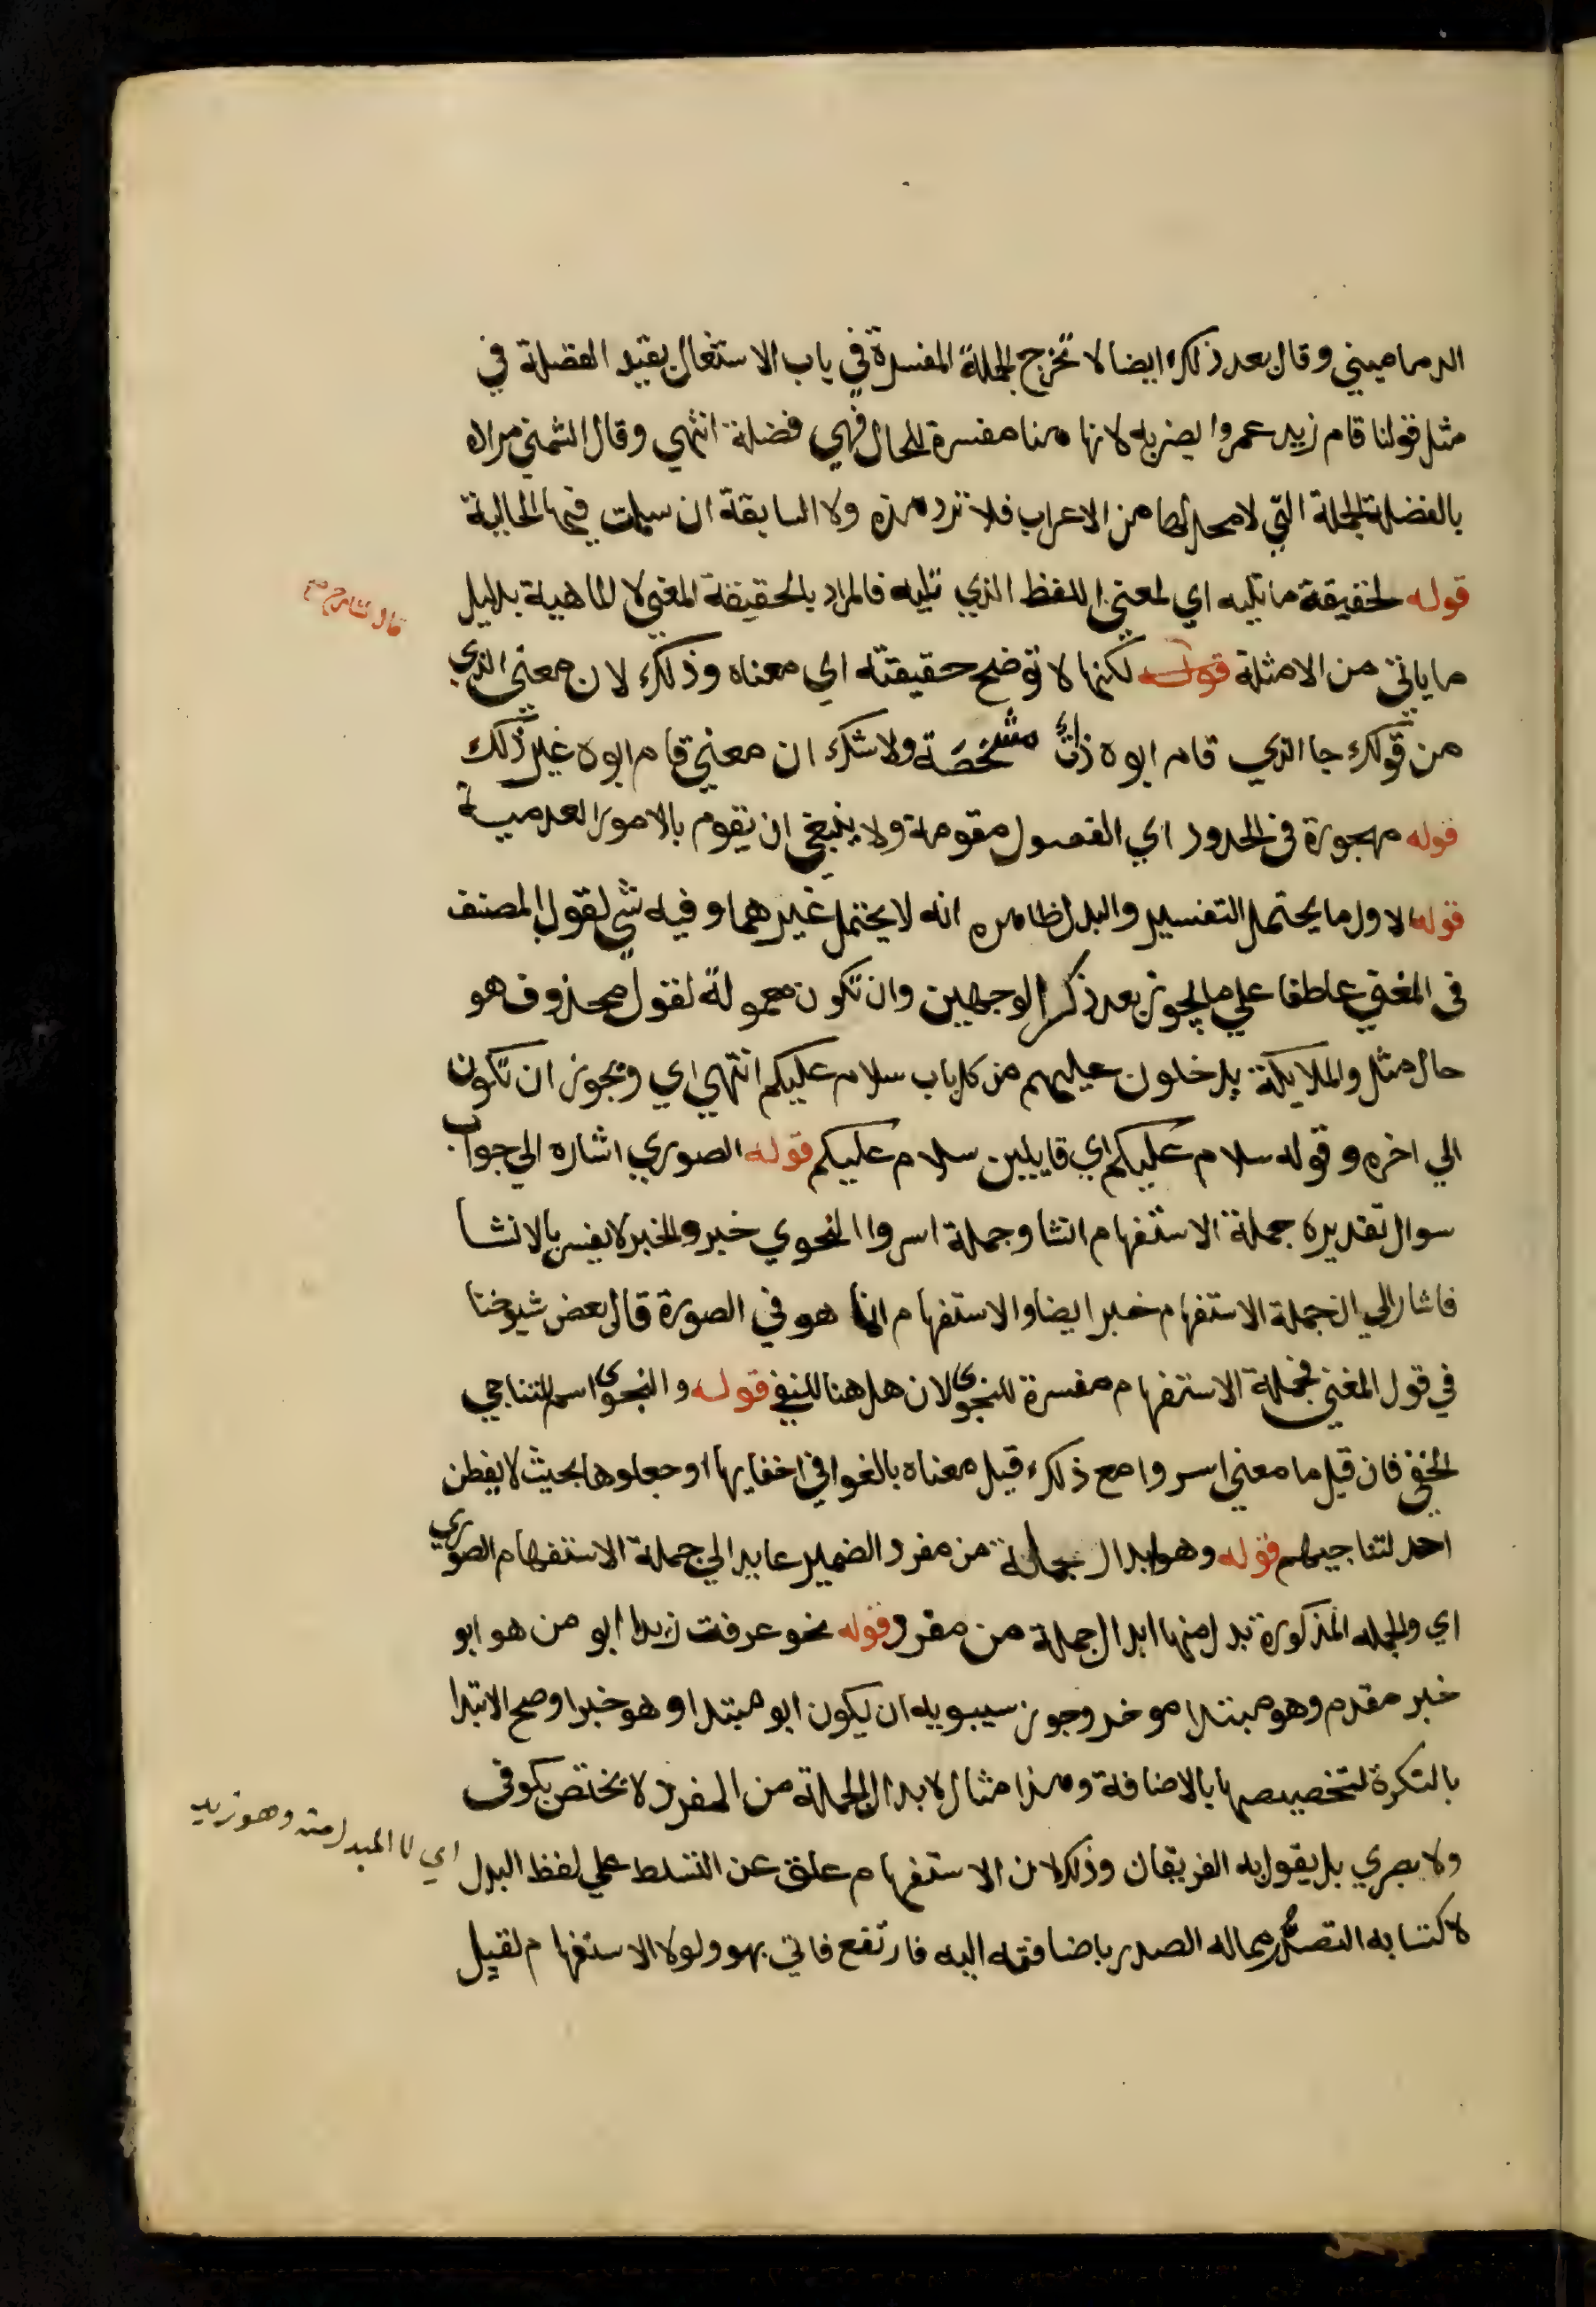 الدماميني وقال بعد ذلك ايضا لا تخرج الجملة المفسرة في باب الاشتغال بقيد الفضلة في
مثل قولنا قام زيد عمروا يضربه لانها هنا مفسرة للحال فهي فضلة انتهي وقال الشمني مراده
بالفضلة الجملة التي لا محل لها من الاعراب فلا ترد هذه ولا السابقة ان سلمت فيها الحالية
قوله لحقيقة ما تليه اي لمعني اللفظ الذي تليه فالمراد بالحقيقة المعني لا الماهية بدليل
قال الشارح
ما ياتي من الامثلة قوله لكنها لا توضح حقيقته اي معناه وذلك لان معني الذي
من قولك جا الذي قام ابوه ذات مشخصة ولا شك ان معني قام ابوه غير ذلك
قوله مهجورة في الحدود اي الفصول مقومة ولا ينبغي ان يقوم بالامور العدمية
قوله الاول ما يحتمل التفسير والبدل ظاهره انه لا يحتمل غيرهما وفيه شي لقول المصنف
في المغني عاطفا علي ما يجوز بعد ذكر الوجهين وان تكون معمولة لقول محذوف هو
حال مثل والملايكة يدخلون عليهم من كل باب سلام عليكم انتهي اي ويجوز ان تكون
الي اخره وقوله سلام عليكم اي قايلين سلام عليكم قوله الصوري اشاره الي جواب
سوال تقديره جملة الاستفهام انشا وجملة اسروا النجوي خبر والخبر لا يفسر بالانشا
فاشار الي ان جملة الاستفهام خبر ايضا والاستفهام انما هو في الصورة قال بعض شيوخنا
في قول المغني فجملة الاستفهام مفسرة للنجوي لان هل هنا للنفي قوله والنجوي اسم للتناجي
الخفي فان قيل ما معني اسروا مع ذلك قيل معناه بالغوا في اخفايها او جعلوها بحيث لا يفطن
احد لتناجيهم قوله وهو ابدال جملة من مفرد الضمير عايد الي جملة الاستفهام الصوري
اي والجمله المذكورة تبدل منها ابدال جملة من مفرد قوله نحو عرفت زيدا ابو من هو ابو
خبر مقدم وهو مبتدا موخر وجوز سيبويه ان يكون ابو مبتدا وهو خبرا وصح الابتدا
بالنكرة لتخصيصها بالاضافة وهذا مثال لابدال الجملة من المفرد لا يختص بكوفي
ولا بصري بل يقول به الفريقان وذلك لان الاستفهام علق عن التسلط علي لفظ البدل
اي لا المبدل منه وهو زيد
لاكتسابه التصدر مما له الصدر باضافته اليه فارتفع فاتي بهو ولولا الاستفهام لقيل